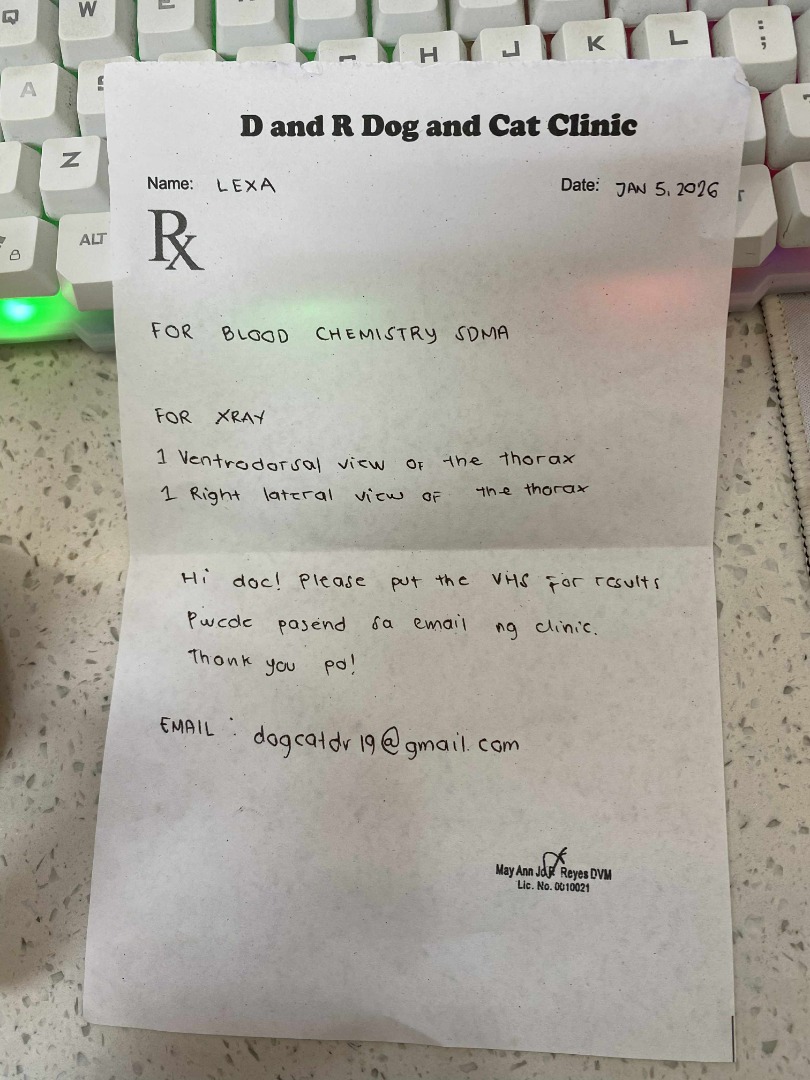 D and R Dog and Cat Clinic
Name: LEXA Date: JAN 5, 2026
Rx
FOR BLOOD CHEMISTRY SDMA
FOR XRAY
1 Ventrodorsal view OF the thorax
1 Right lateral view OF the thorax
Hi doc! Please put the VHS For results
Pwede pasend sa email ng clinic.
Thank you po!
EMAIL : dogcatdr19@gmail.com
May Ann Reyes DVM
Lic. No. 0010021
Q W E
H J K L ;:
A
Z
ALT